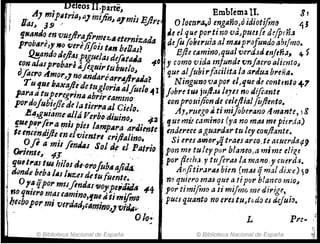 Deleos II. parte,
Ay mi patria, ay mi fin, ay mis Esfre-
llas, 39
quando en vuestra firmeza eternizada
probarè, y no verè fsois tan bellas!
Quando de
podrè las probar à seguir tu buelo,
o sacro Amor, y no andarè arrastrada?
Tu que baxaste de tu gloria al suelo 41
para a tu peregrina abrir camino
por do subiesse de la tierra al Cielo.
Se, guiame allà Verbo divino, 42
que por ser a mis pies lampara ardiente
te encendiste en el vientre cristalino,
O se a mis sendas Sol de el Patrio
Oriente, 43
que tras tus hilos de oro suba asida
donde beba las luzes de tu fuente.
O ya si por mis sendas voy perdida 44
no quiero mas camino, que a ti mismo
hecho por mi verdad, camino, y vida.
O lo-
Emblema II. 81
O locura, ò engaño, ò idiotismo 45
de el que por ti no và, pues se despeña
de su soberuia al mas profundo abismo.
Esse camino, qual verdad enseña, 46
y como vida infunde vn sacro aliento,
que al subir facilita la ardua breña.
Ninguno va por el, que de contento 47
sobre tus justas leyes no descante
con prouision de celestial sustento.
Ay, ruego à ti mi soberano Amante, 48
que mis caminos (ya no mas me pierda)
enderece a guardar tu ley constante.
Si eres amor, q̃ traes arco, te acuerda 49
pon me tu ley por blanco, a mi me elige
por flecha y tu seras la mano, y cuerda.
Assi tiraràs bien (mas q̃ mal dixe) 50
no quiero mas que a ti por blanco mio,
por ti mismo a ti mismo me dirige,
pues quanto no eres tu, todo es desuio.
L Pre-
© Biblioteca Nacional de España
© Biblioteca Nacional de España